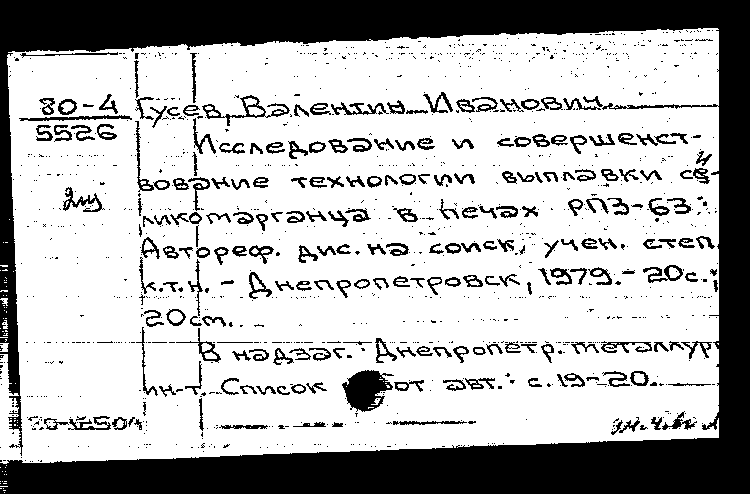 80-4
5526
2 из
Гусев, Валентин Иванович.
Исследование и совершенст-
вование технологии выплавки си-
ликомарганца в печах РПЗ-63:
Автореф. дис. на соиск. учен. степ.
к.т.н. - Днепропетровск, 1979. - 20с.;
20см.
В надзаг.: Днепропетр. металлург
ин-т. Список от авт.: с.19-20.